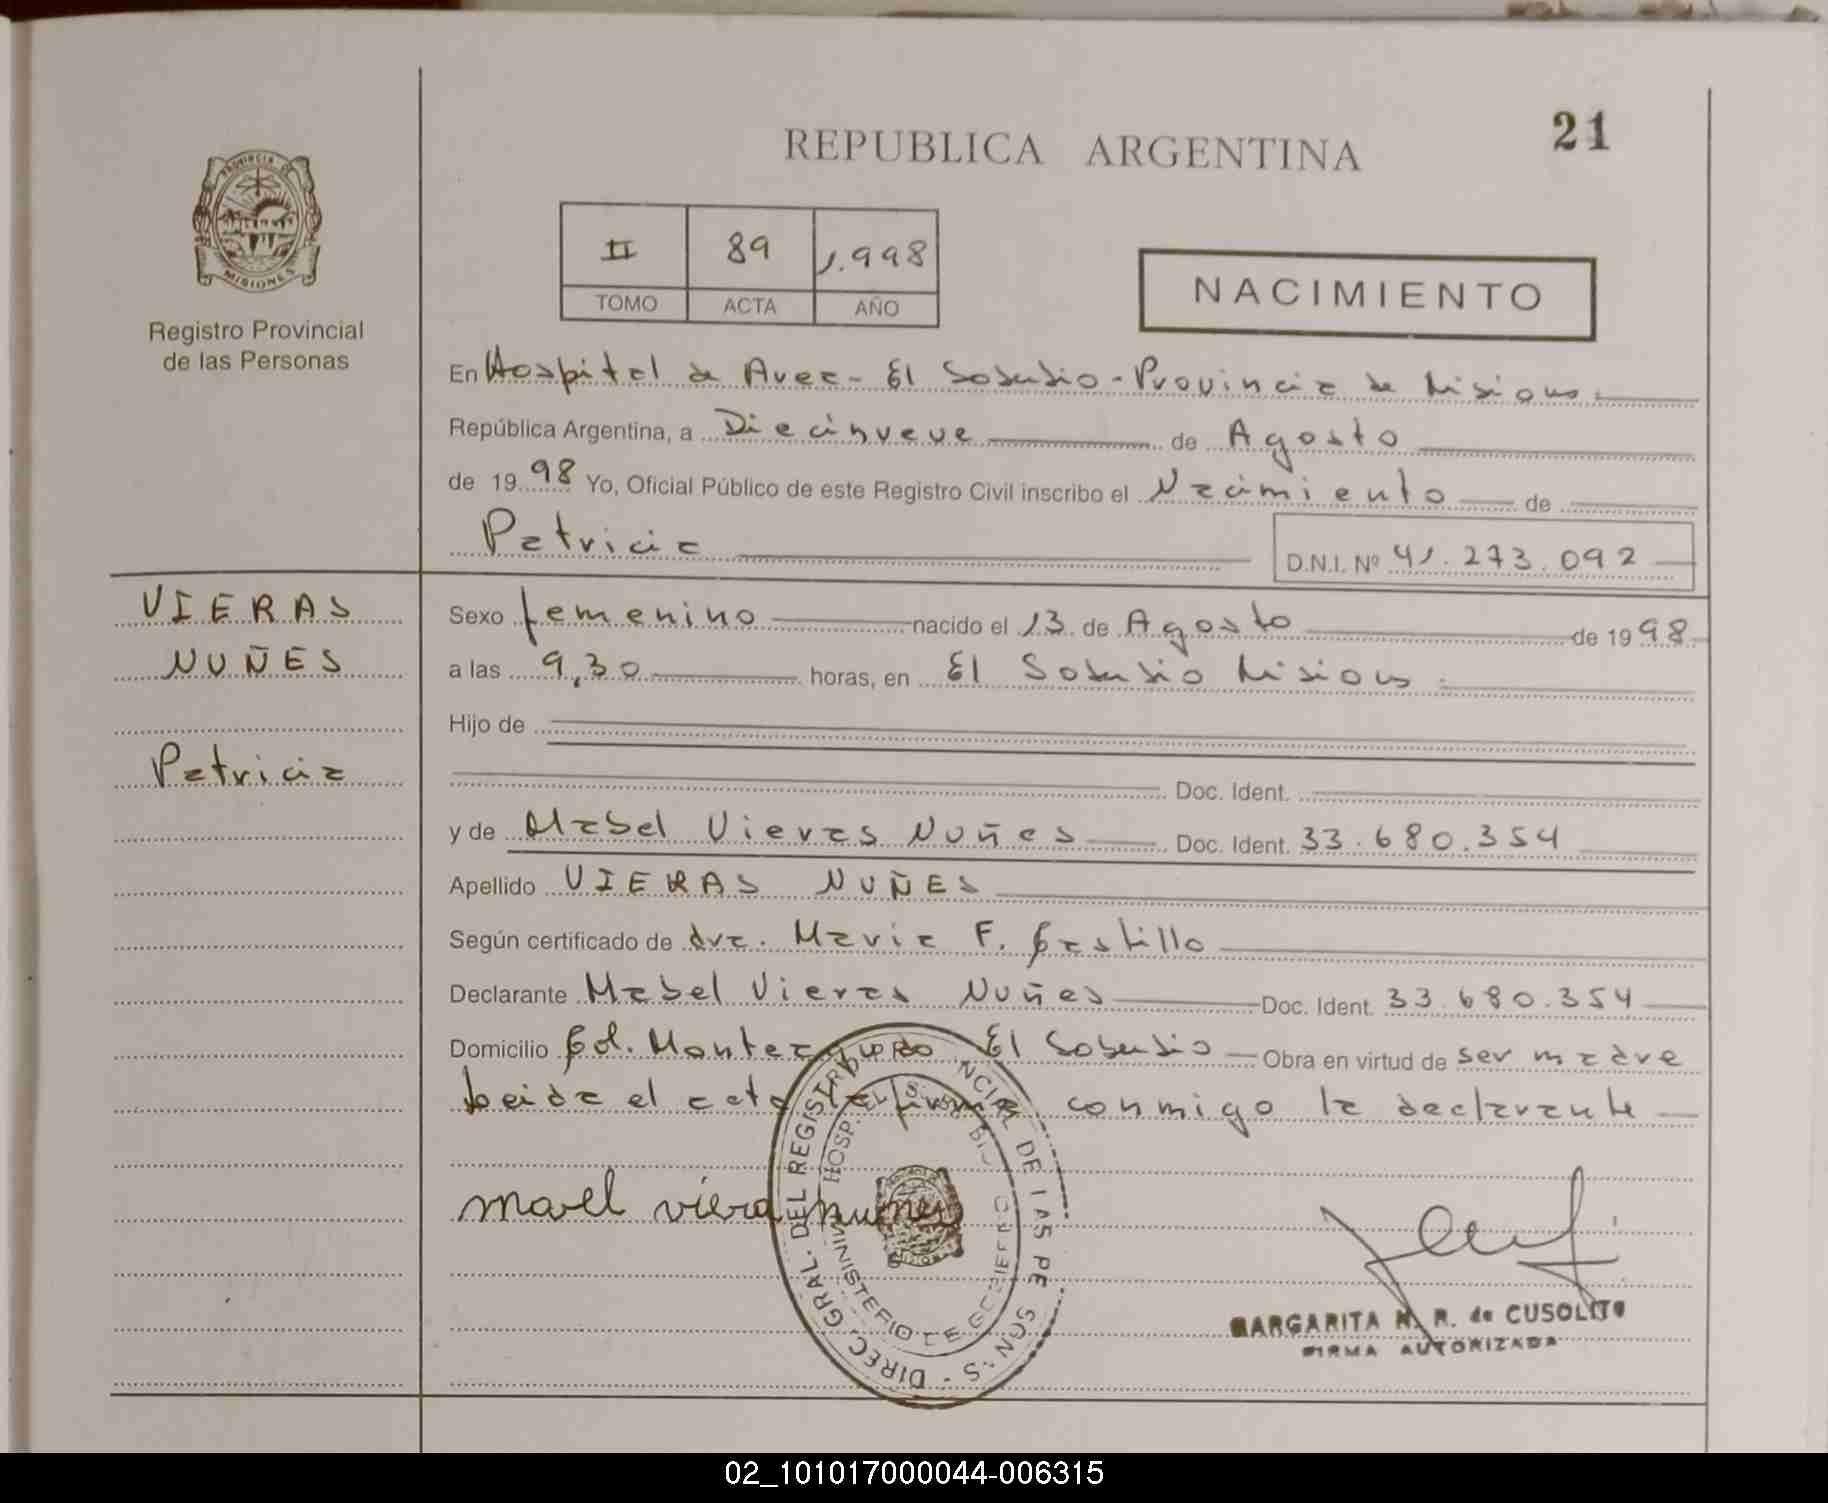 21
REPUBLICA ARGENTINA
PROVINCIA DE
MISIONES
Registro Provincial
de las Personas
II 89 1.998
TOMO ACTA AÑO
NACIMIENTO
En Hospital de Area - El Soberbio - Provincia de Misiones.
República Argentina, a Diecinueve de Agosto
de 1998 Yo, Oficial Público de este Registro Civil inscribo el Nacimiento de
Patricia D.N.I. Nº 41.273.092
VIERAS
NUÑES
Patricia
Sexo femenino nacido el 13 de Agosto de 1998
a las 9,30 horas, en El Soberbio Misiones.
Hijo de
Doc. Ident.
y de Mabel Vieras Nuñes Doc. Ident. 33.680.354
Apellido VIERAS NUÑES
Según certificado de dra. Maria F. Castillo
Declarante Mabel Vieras Nuñes Doc. Ident. 33.680.354
Domicilio Col. Monteagudo El Soberbio Obra en virtud de ser madre
Leida el acta la firma conmigo la declarante
mavel viera nuñes
DIREC. GRAL. DEL REGISTRO PROVINCIAL DE LAS PERSONAS
HOSP. EL SOBERBIO
MINISTERIO DE GOBIERNO
MARGARITA N. R. de CUSOLITO
FIRMA AUTORIZADA
02_101017000044-006315